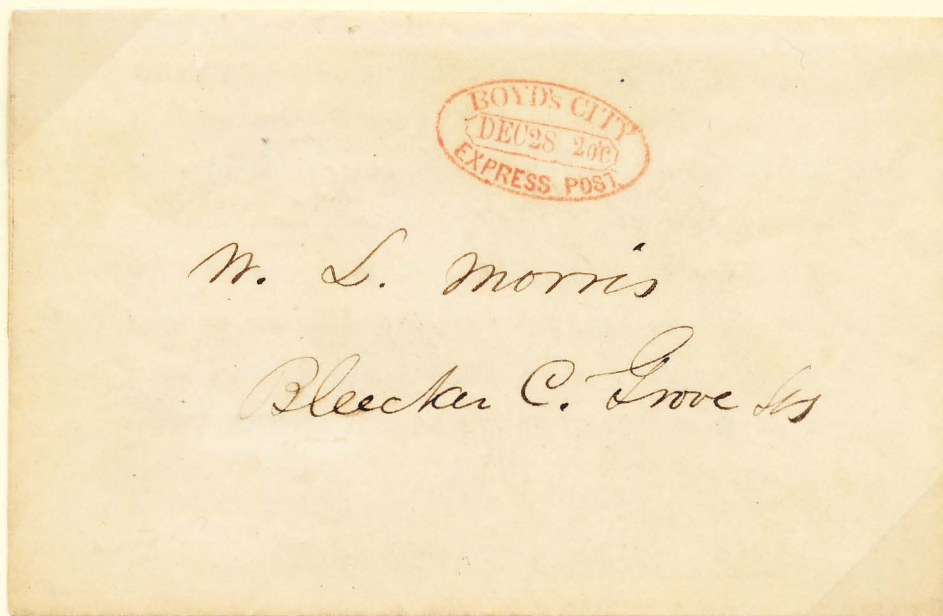 BOYD's CITY
DEC 28 2cts
EXPRESS POST.
W. L. Morris
Bleecker C. Grove Sts